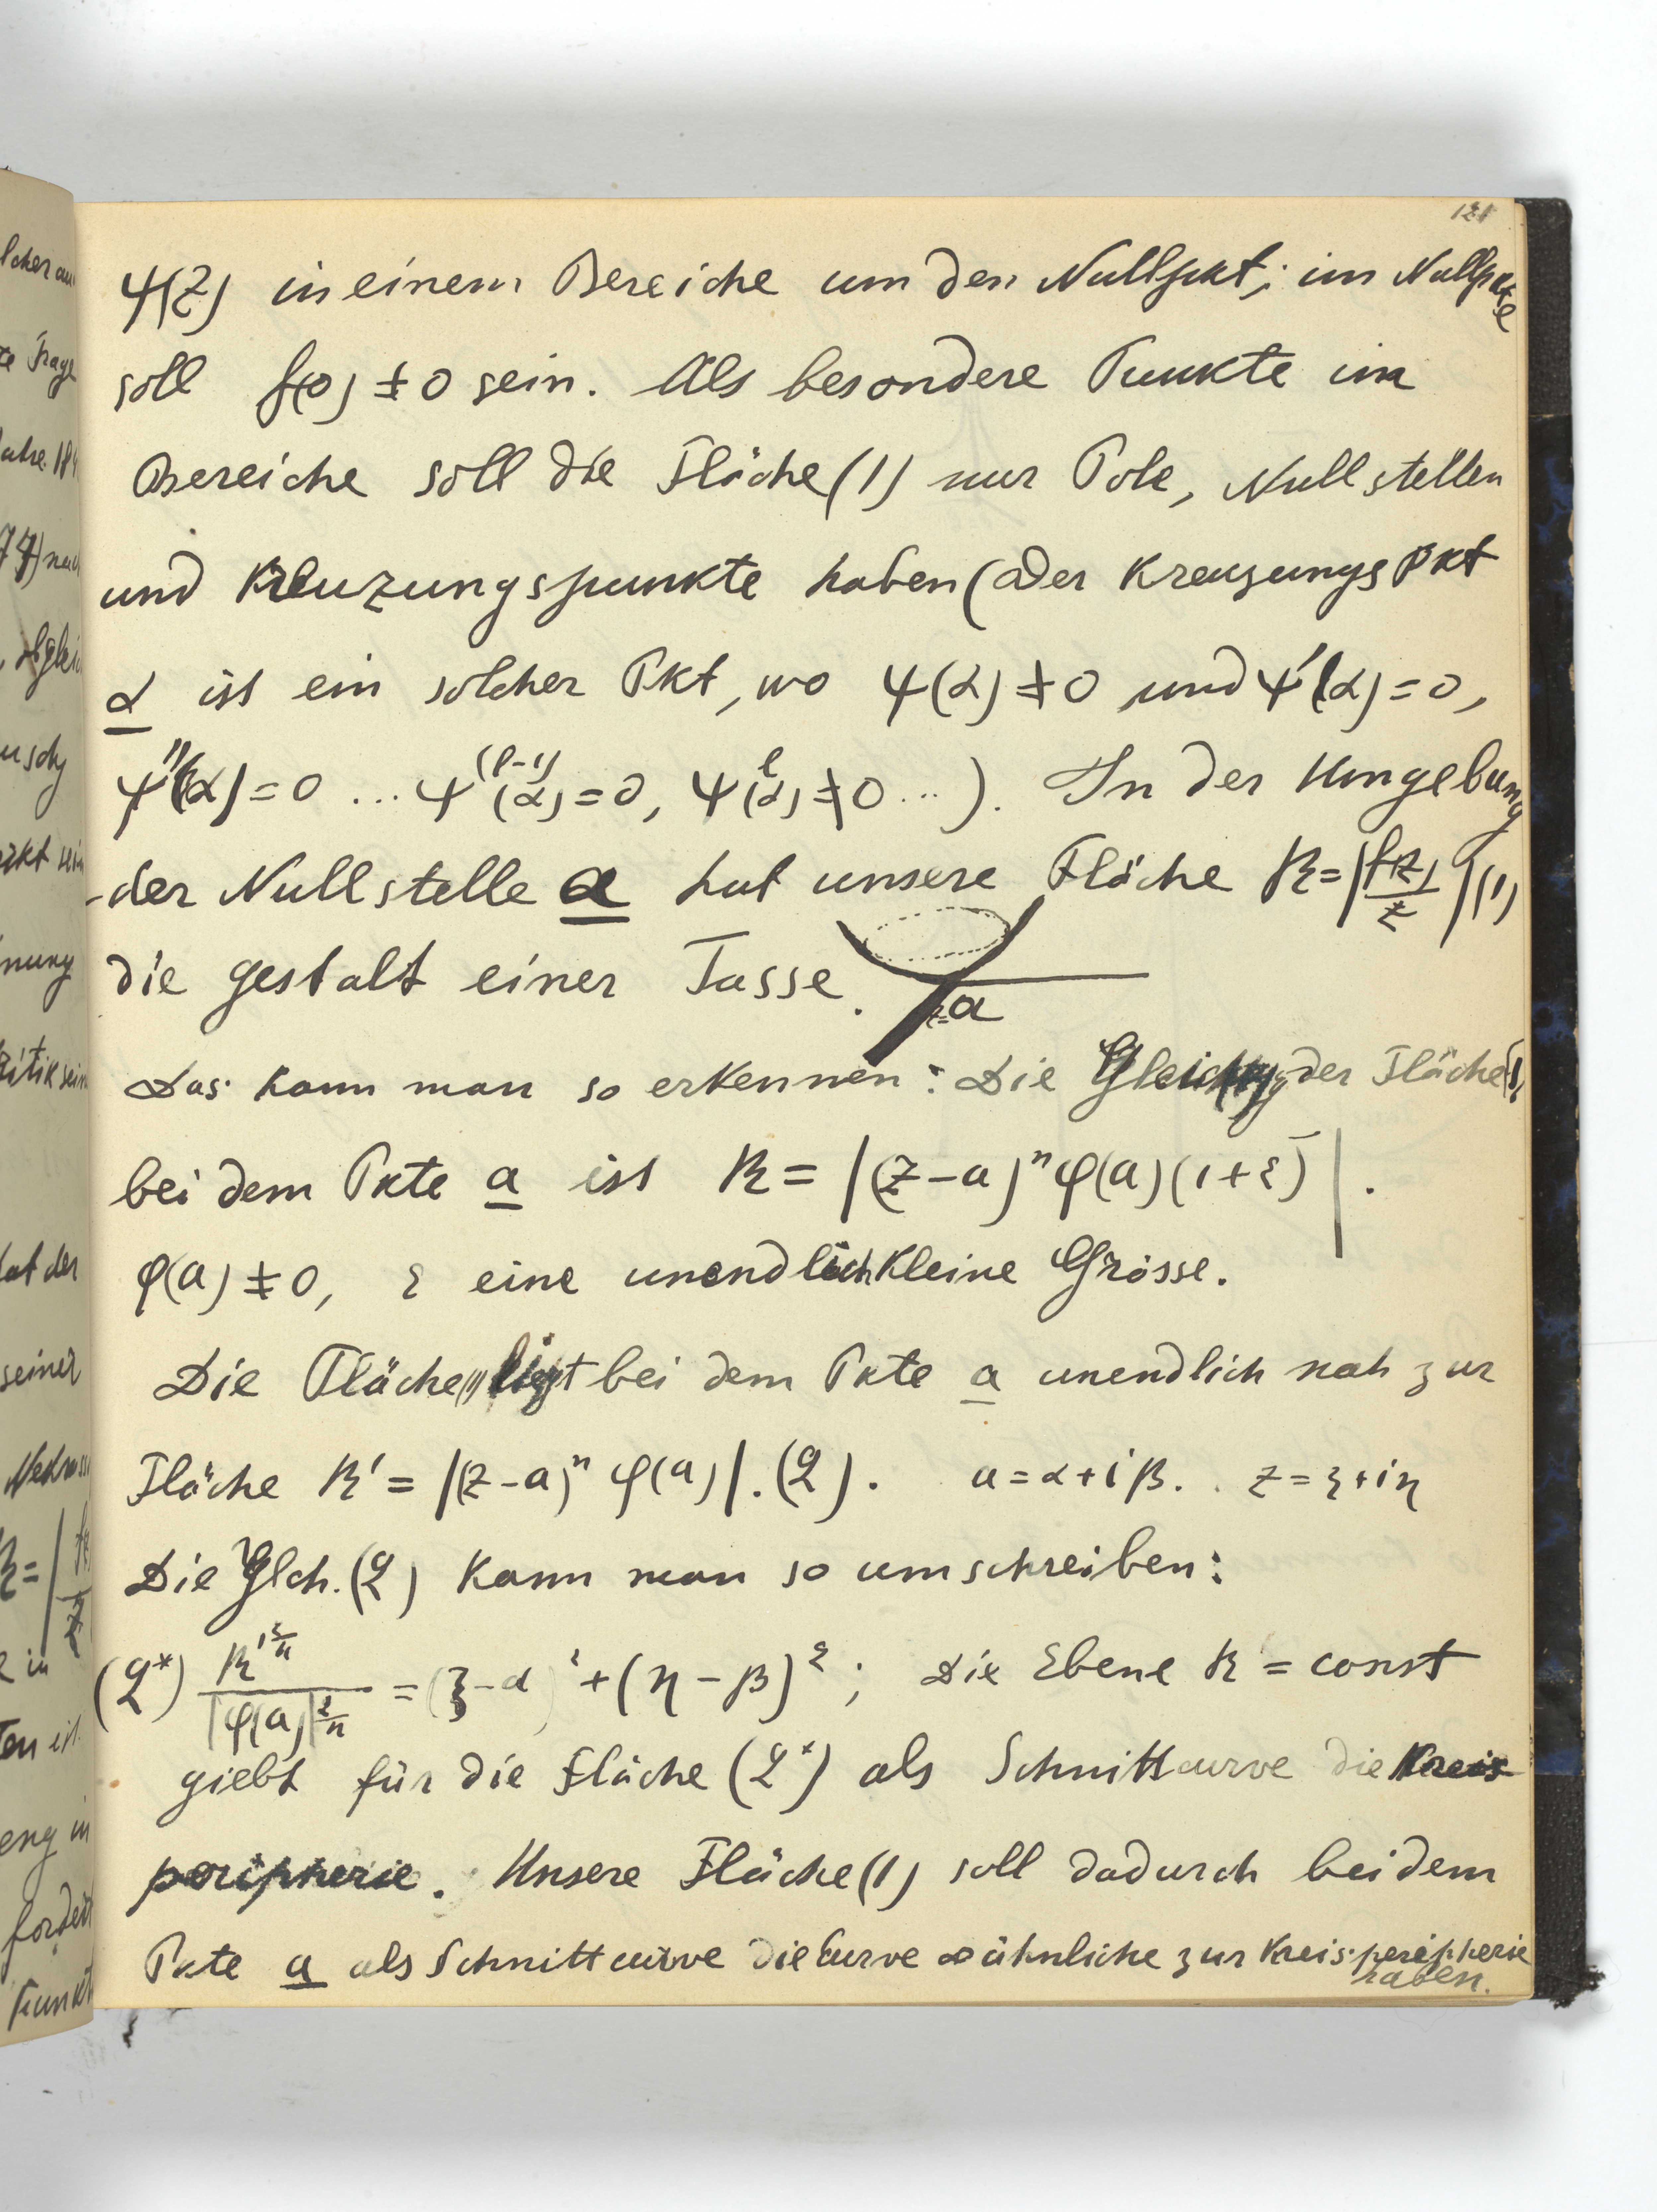 121
ψ(z) in einem Bereiche um den Nullpkt; im Nullpkte
soll f(o) ≠ 0 sein. Als besondere Punkte im
Bereiche soll die Fläche (1) nur Pole, Nullstellen
und Kreuzungspunkte haben (Der Kreuzungspkt
α ist ein solcher Pkt, wo ψ(α) ≠ 0 und ψ'(α) = 0,
ψ''(α) = 0 ... ψ^(l-1)(α) = 0, ψ^l(α) ≠ 0 ... ). In der Umgebung
der Nullstelle a hat unsere Fläche R = |f(z)/z| (1)
die Gestalt einer Tasse.
z=a
Das kann man so erkennen: Die Gleichg der Fläche (1)
bei dem Pkte a ist R = |(z-a)^n φ(a)(1+ε)|.
φ(a) ≠ 0, ε eine unendlich kleine Grösse.
Die Fläche (1) liegt bei dem Pkte a unendlich nah zur
Fläche R' = |(z-a)^n φ(a)|. (2). a = α + iβ. z = ξ + iη
Die Glch. (2) kann man so umschreiben:
(2*) R'^(2/n) / |φ(a)|^(2/n) = (ξ-α)² + (η-β)²; Die Ebene R' = const
giebt für die Fläche (2*) als Schnittcurve die Kreis
peripherie. Unsere Fläche (1) soll dadurch bei dem
Pkte a als Schnittcurve die Curve ∞ ähnliche zur Kreisperipherie
haben.